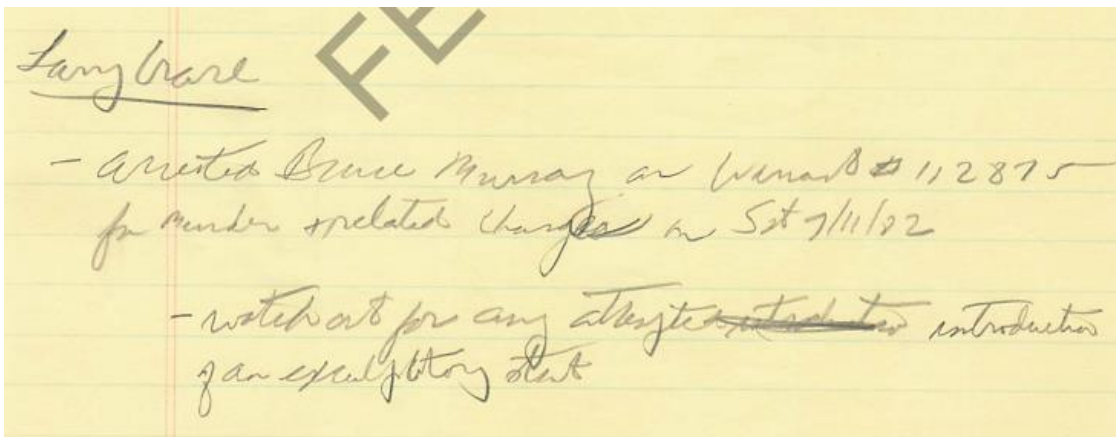 FE
Larry
- arrested Bruce Murray on Warrant # 112875
for murder + related charges on Sat 9/11/82
- watch out for any attempted introduction introduction
of an exculpatory stmt